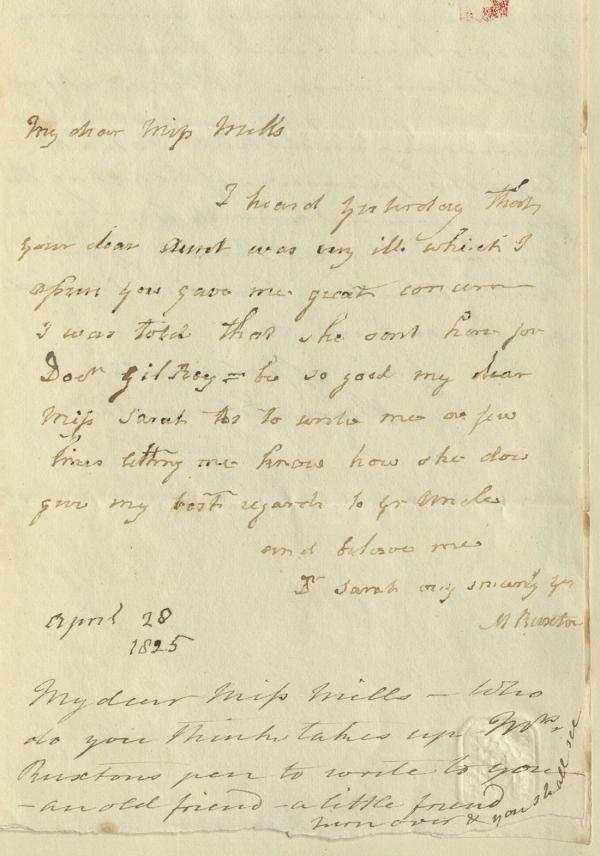 My dear Miss Mills
I heard yesterday that
your dear Aunt was very ill which I
assure you gave me great concern
I was told that she sent here for
Doctr. Gilroy = be so good my dear
Miss Sarah to write me a few
lines letting me know how she does
give my best regards to yr Uncle
and believe me
Dr Sarah very sincerely yrs
M Ruxton
April 28
1825
My dear Miss Mills — Who
do you think takes up Mrs.
Ruxtons pen to write to you
— an old friend — a little friend
turn over & you shall see